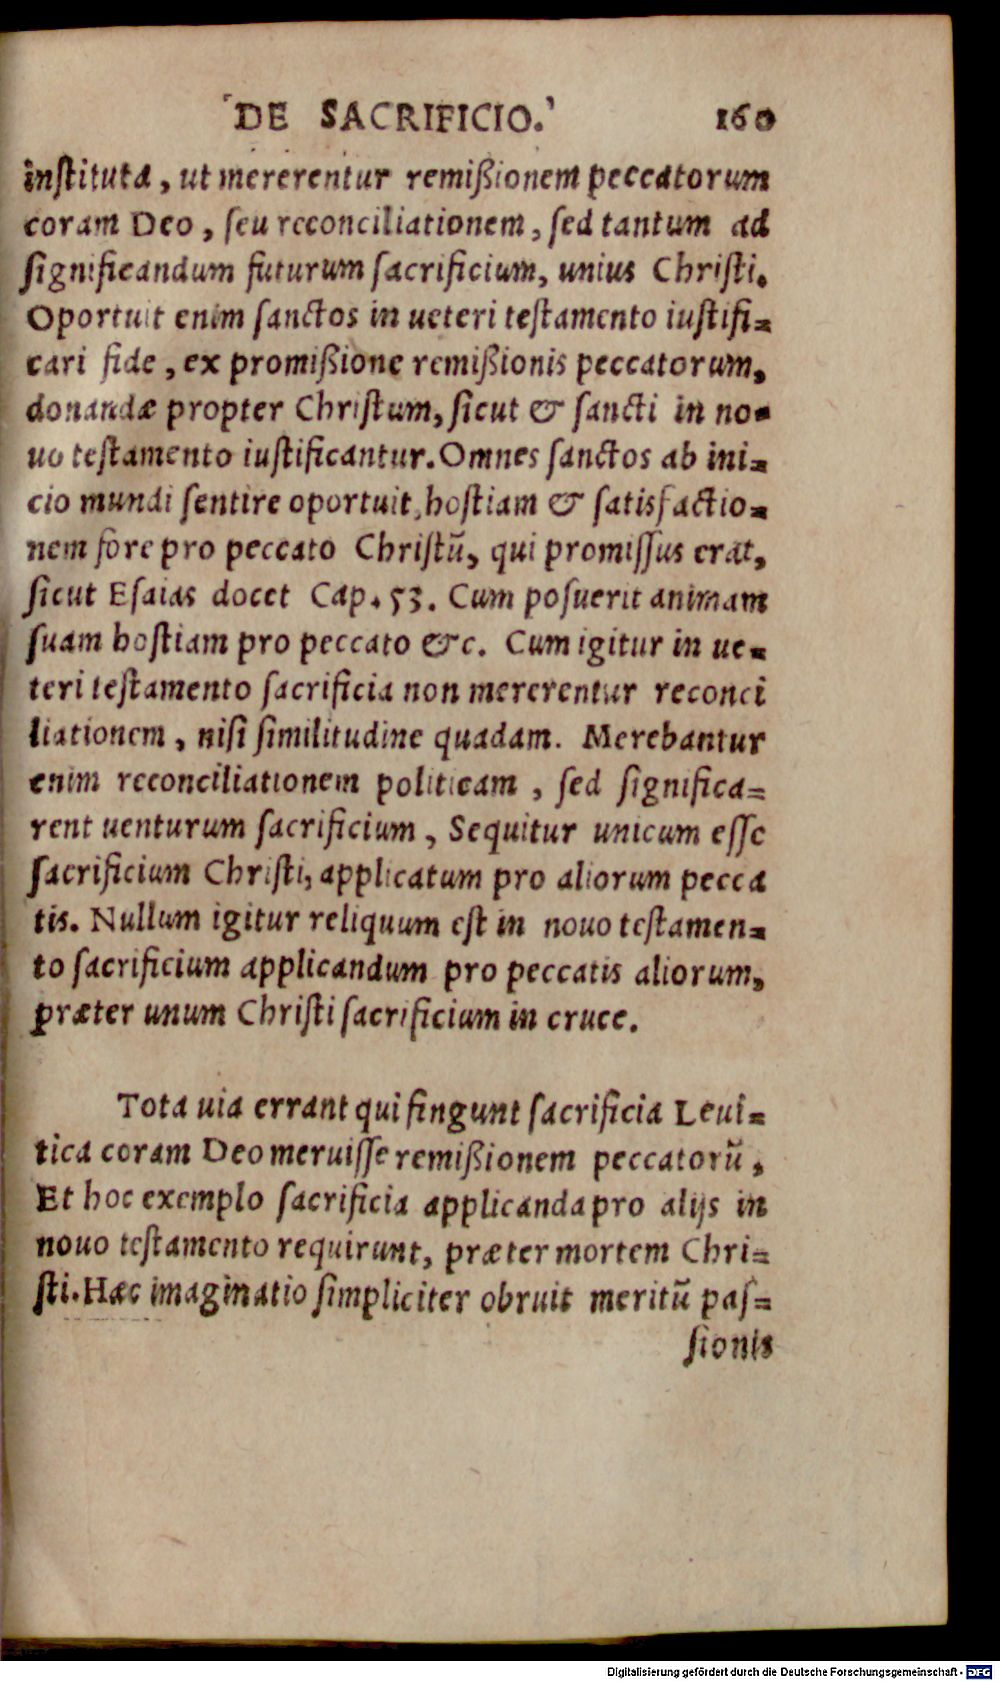 DE SACRIFICIO. 160
instituta, ut mererentur remißionem peccatorum
coram Deo, seu reconciliationem, sed tantum ad
significandum futurum sacrificium, unius Christi.
Oportuit enim sanctos in ueteri testamento iustifi=
cari fide, ex promißione remißionis peccatorum,
donandæ propter Christum, sicut & sancti in no=
uo testamento iustificantur. Omnes sanctos ab ini=
cio mundi sentire oportuit, hostiam & satisfactio=
nem fore pro peccato Christũ, qui promissus erat,
sicut Esaias docet Cap. 53. Cum posuerit animam
suam hostiam pro peccato &c. Cum igitur in ue=
teri testamento sacrificia non mererentur reconci
liationem, nisi similitudine quadam. Merebantur
enim reconciliationem politicam, sed significa=
rent uenturum sacrificium, Sequitur unicum esse
sacrificium Christi, applicatum pro aliorum pecca
tis. Nullum igitur reliquum est in nouo testamen=
to sacrificium applicandum pro peccatis aliorum,
præter unum Christi sacrificium in cruce.
Tota uia errant qui fingunt sacrificia Leui=
tica coram Deo meruisse remißionem peccatorũ,
Et hoc exemplo sacrificia applicanda pro alijs in
nouo testamento requirunt, præter mortem Chri=
sti. Hæc imaginatio simpliciter obruit meritũ pas=
sionis
Digitalisierung gefördert durch die Deutsche Forschungsgemeinschaft - DFG